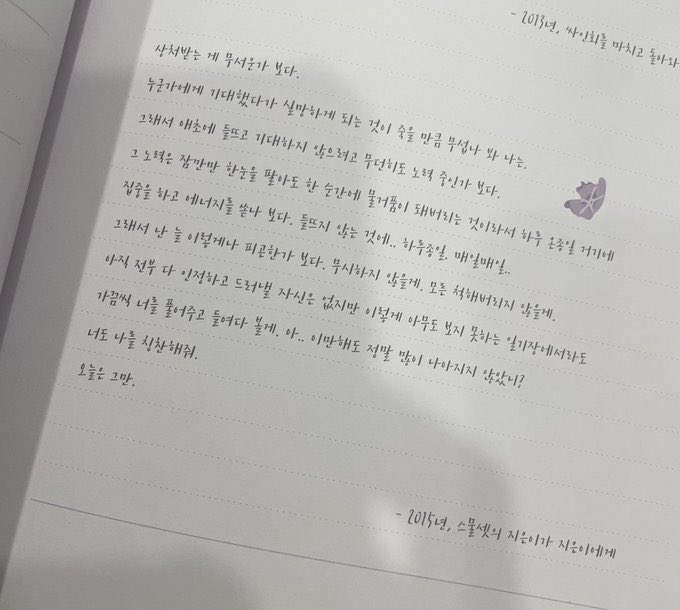 - 2013년, 싸인회를 마치고 돌아와
상처받는 게 무서운가 보다.
누군가에게 기대했다가 실망하게 되는 것이 죽을 만큼 무섭나 봐 나는.
그래서 애초에 들뜨고 기대하지 않으려고 무던히도 노력 중인가 보다.
그 노력은 잠깐만 한눈을 팔아도 한 순간에 물거품이 돼버리는 것이라서 하루 온종일 거기에
집중을 하고 에너지를 쏟나 보다. 들뜨지 않는 것에.. 하루종일. 매일매일..
그래서 난 늘 이렇게나 피곤한가 보다. 무시하지 않을게. 모른 척해버리지 않을게.
아직 전부 다 인정하고 드러낼 자신은 없지만 이렇게 아무도 보지 못하는 일기장에서라도
가끔씩 너를 풀어주고 들여다 볼게. 아.. 이만해도 정말 많이 나아지지 않았니?
너도 나를 칭찬해줘.
오늘은 그만.
- 2015년, 스물셋의 지은이가 지은이에게